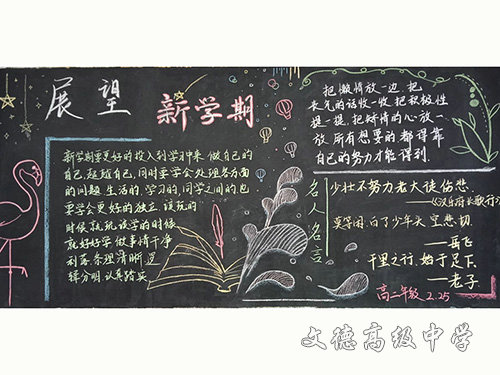 展望
新学期
新学期要更好的投入到学习中来 做自己的
自己,超越自己,同时要学会处理各方面
的问题 生活的,学习的,同学之间的也
要学会更好的独立 该玩的
时候就玩 该学的时候
就好好学 做事情干净
利落 条理清晰
辑分明 认真踏实
把懒惰放一边 把
丧气的话收一收 把积极性
提一提 把矫情的心放一
放 所有想要的都得靠
自己的努力才能得到.
名人名言
少壮不努力老大徒伤悲.
——《汉乐府长歌行》
莫等闲,白了少年头 空悲切
——岳飞
千里之行,始于足下
——老子.
高二年级 2.25
文德高级中学